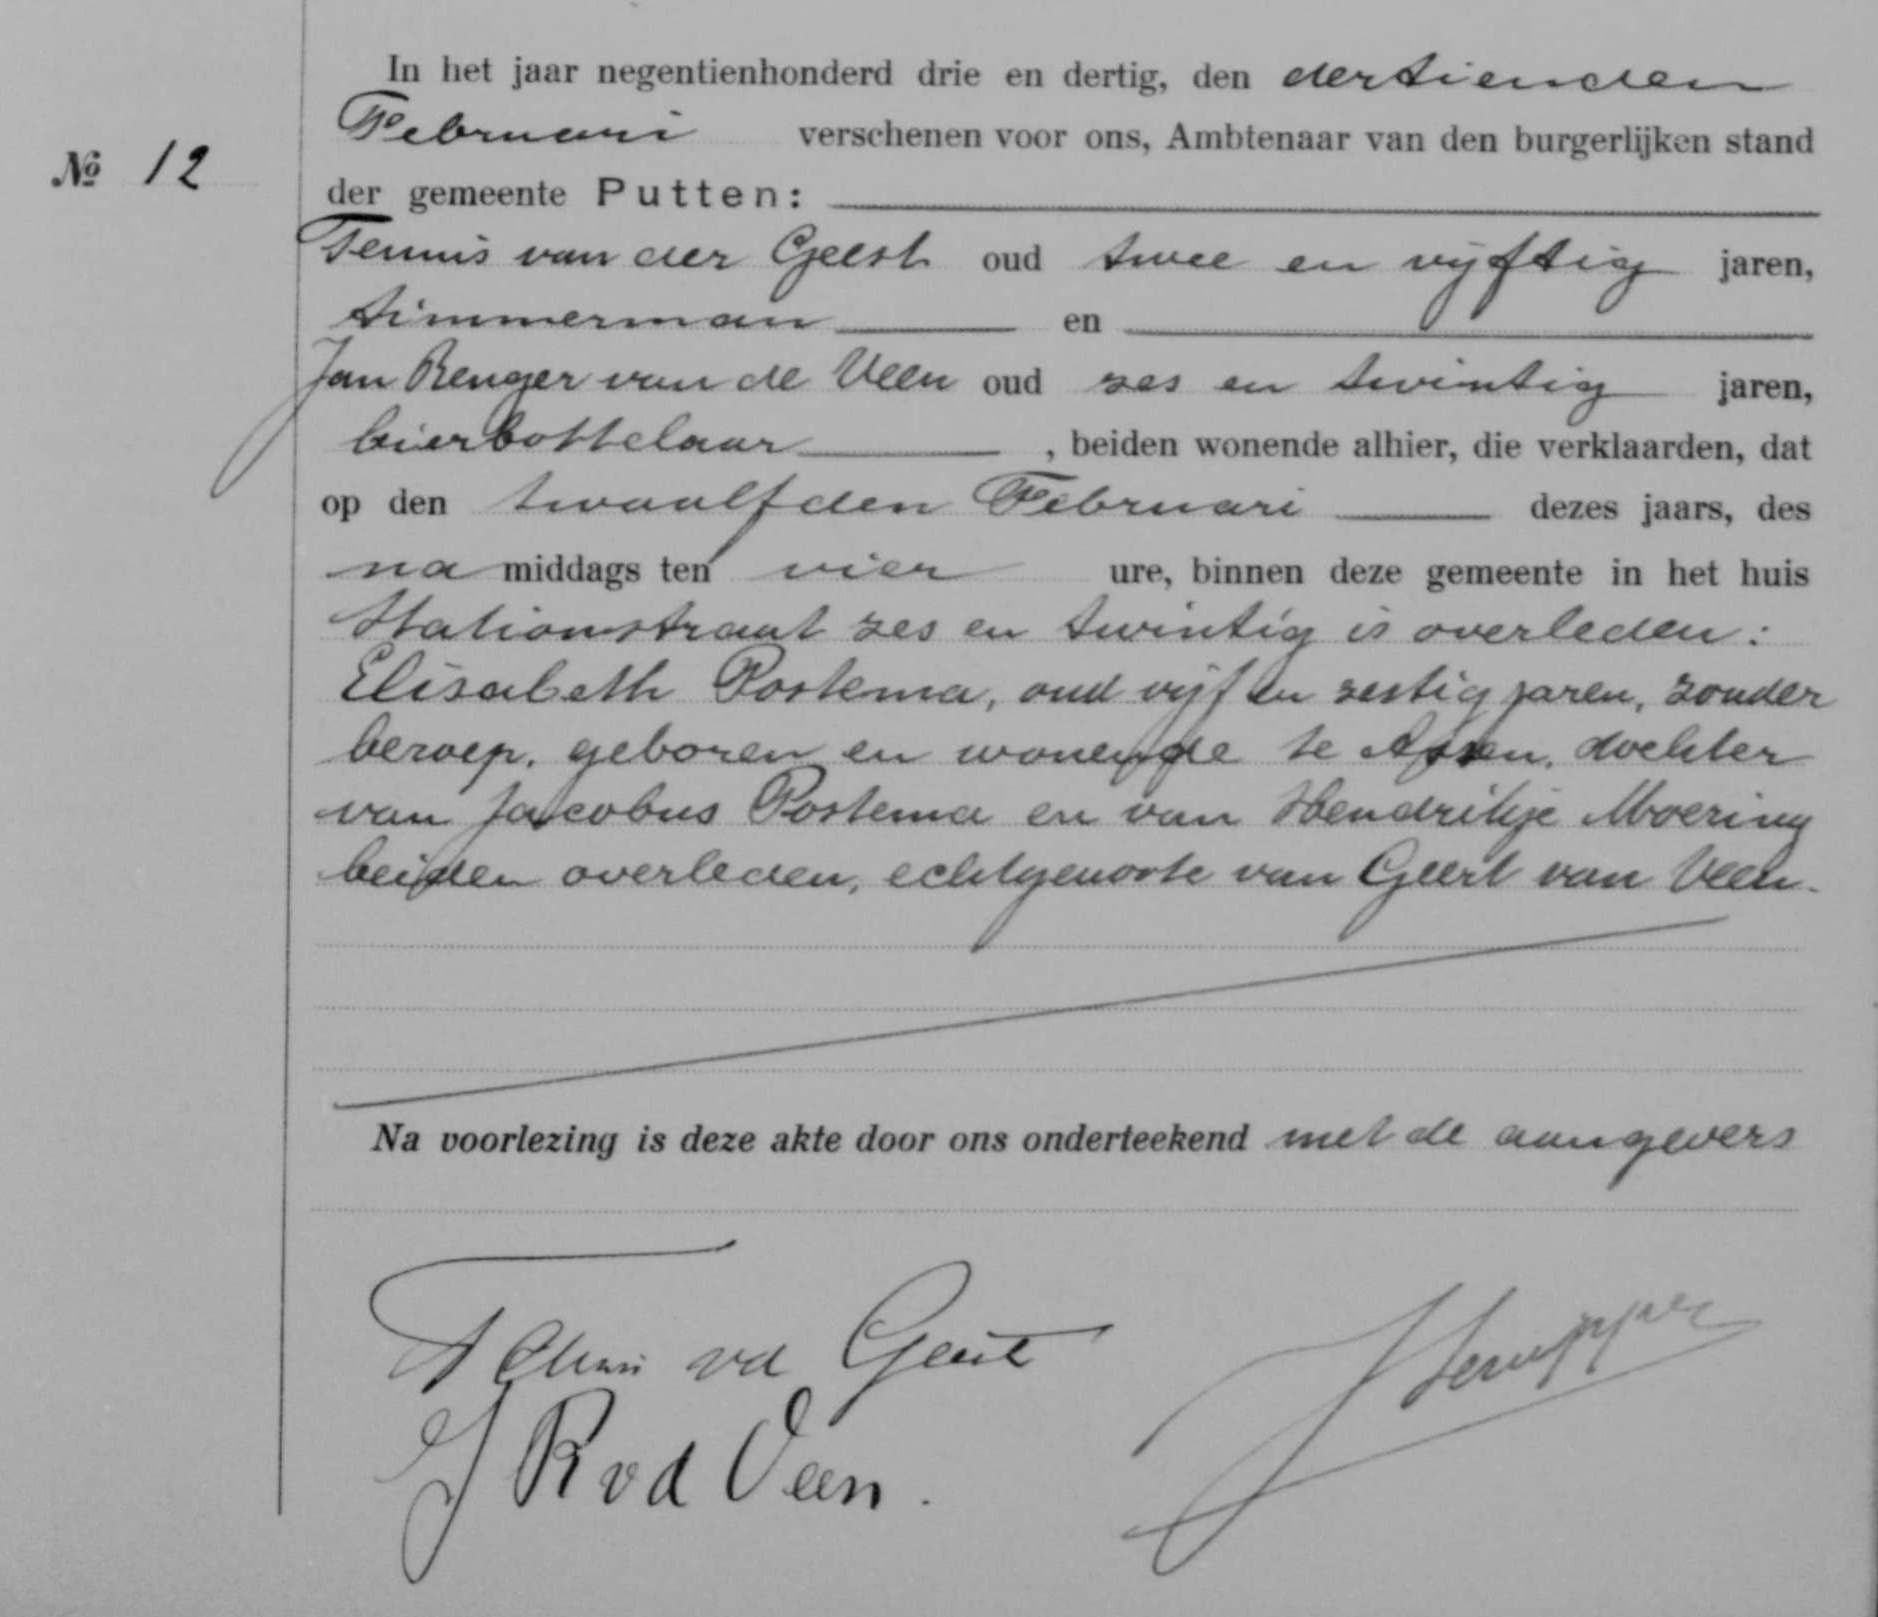 In het jaar negentienhonderd drie en dertig, den dertienden
Februari verschenen voor ons, Ambtenaar van den burgerlijken stand
№ 12
der gemeente Putten:
Teunis van der Geest oud twee en vijftig jaren,
timmerman en
Jan Renger van de Veen oud zes en twintig jaren,
bierbottelaar, beiden wonende alhier, die verklaarden, dat
op den twaalfden Februari dezes jaars, des
na middags ten vier ure, binnen deze gemeente in het huis
Stationstraat zes en twintig is overleden:
Elisabeth Postema, oud vijf en zestig jaren, zonder
beroep, geboren en wonende te Assen, dochter
van Jacobus Postema en van Hendrikje Moering
beiden overleden, echtgenoote van Geert van Veen.
Na voorlezing is deze akte door ons onderteekend met de aangevers
Teunis vd Geest
J R vd Veen.